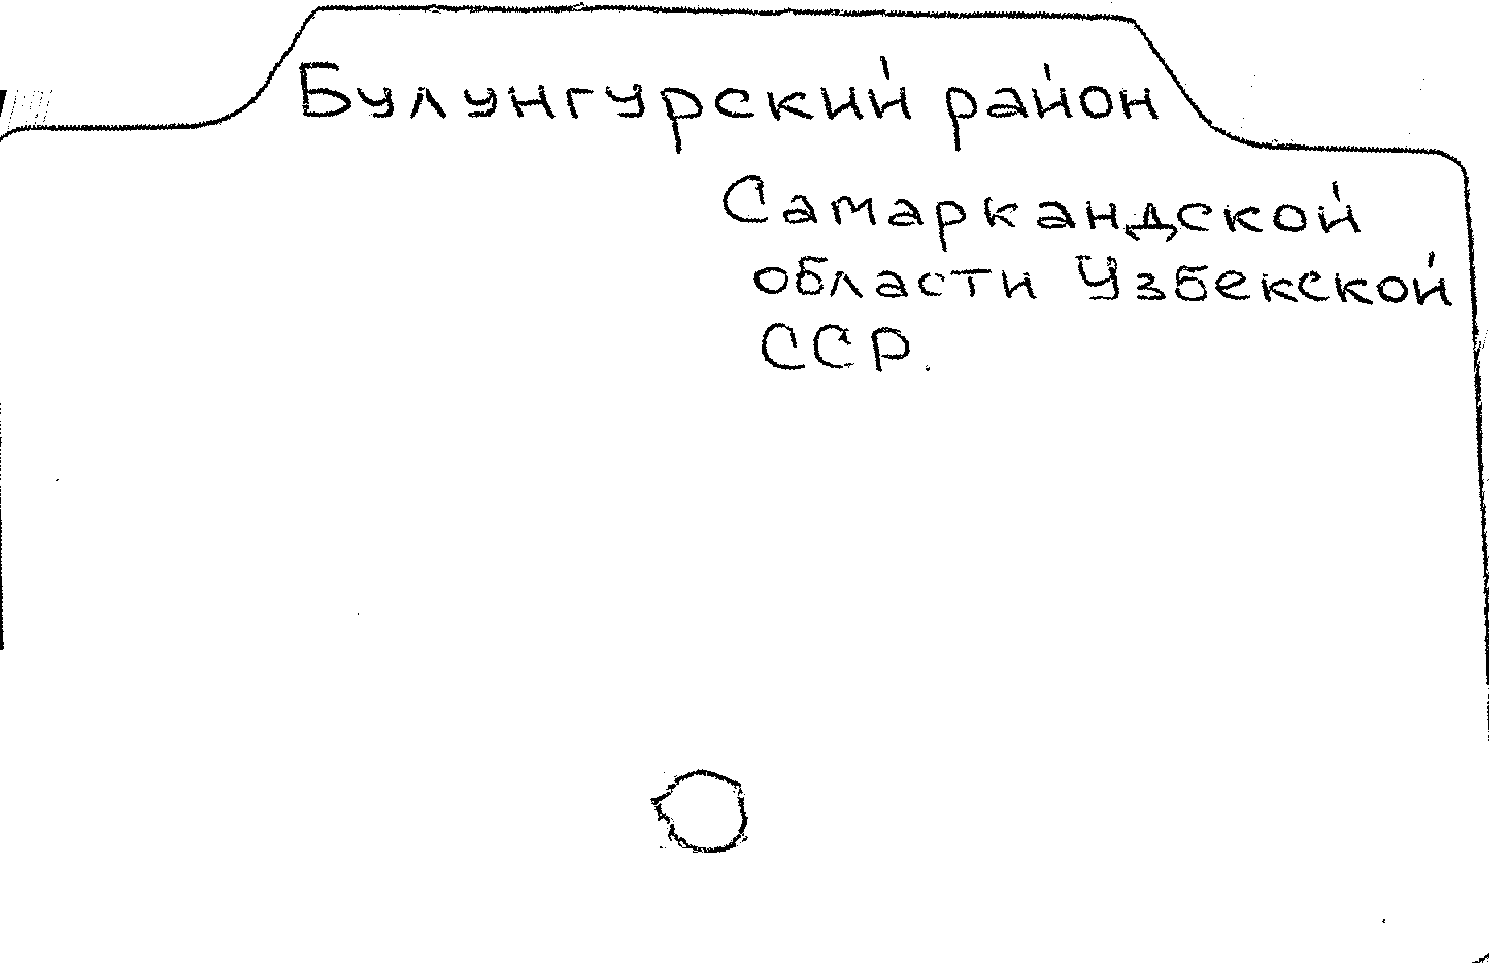 Булунгурский район
Самаркандской
области Узбекской
ССР.